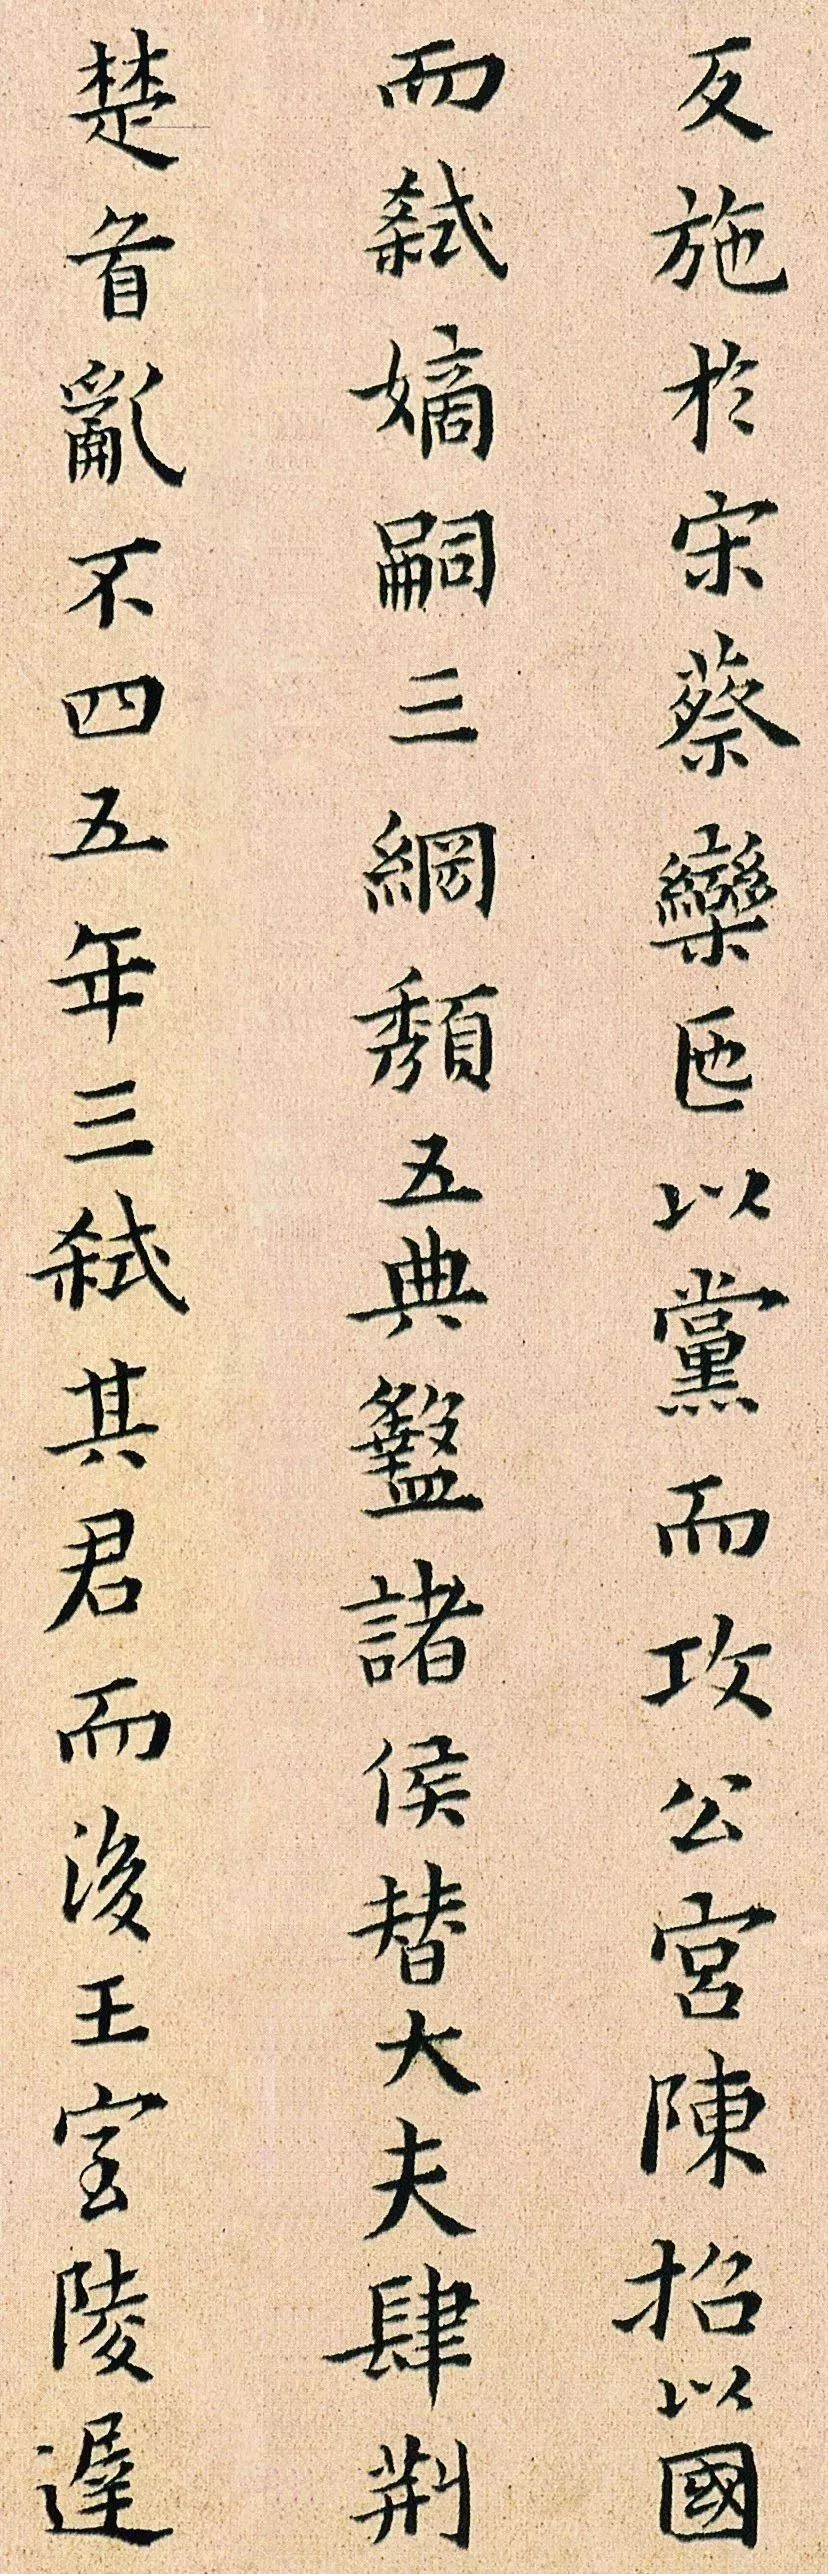 反施於宋蔡欒匜以黨而攻公宮陳招以國
而弒嫡嗣三綱頹五典盭諸侯替大夫肆荊
楚首亂不四五年三弒其君而後王室陵遲